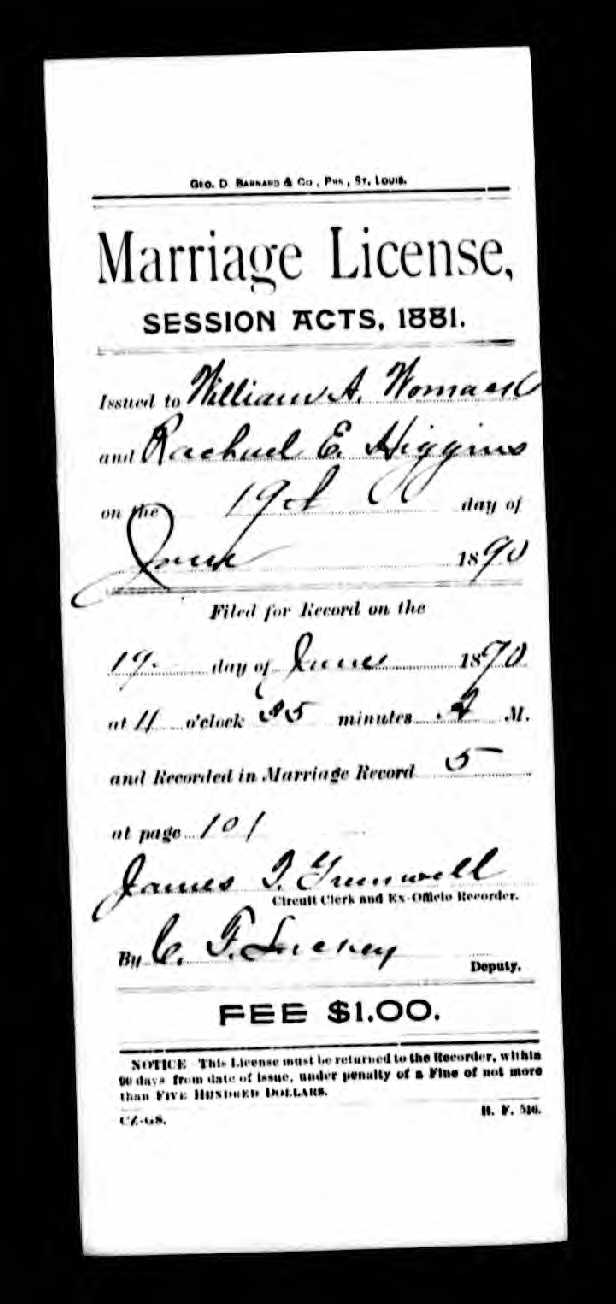 GEO. D. BARNARD & CO., PRS., ST. LOUIS.
Marriage License,
SESSION ACTS, 1881.
Issued to William A. Womack
and Rachael E. Higgins
on the 19th day of
June 1890
Filed for Record on the
19. day of June 1890
at 11 o'clock 25 minutes A M.
and Recorded in Marriage Record 5
at page 101
James
Circuit Clerk and Ex-Officio Recorder.
By C. F. Luckey
Deputy.
FEE $1.00.
NOTICE This License must be returned to the Recorder, within
90 days from date of issue, under penalty of a Fine of not more
than FIVE HUNDRED DOLLARS.